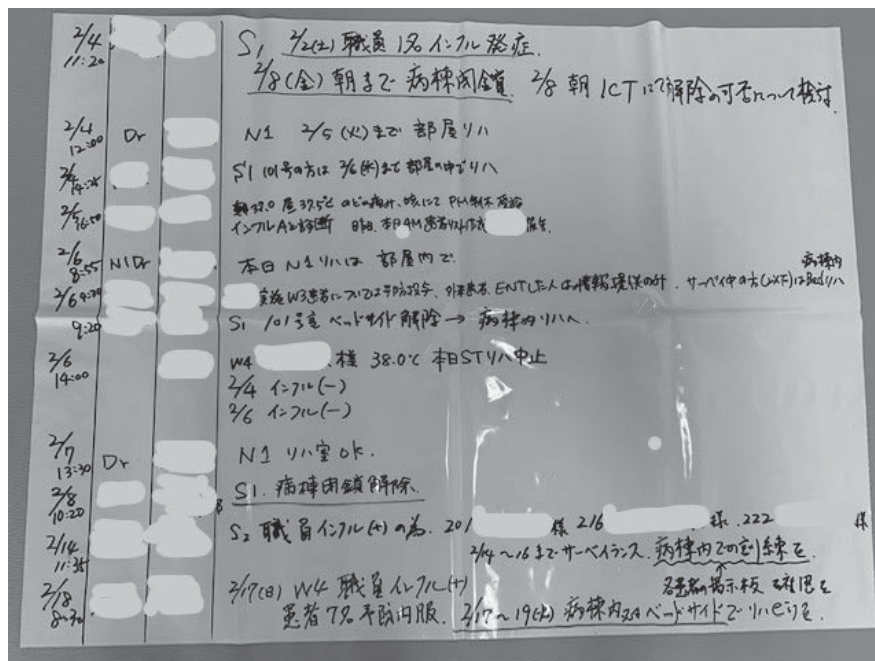 2/4 11:20 S1 2/2(土) 職員1名インフル発症.
2/8(金)朝まで 病棟閉鎖. 2/8 朝 ICTにて解除の可否について検討.
2/4 12:00 Dr N1 2/5(火)まで 部屋リハ
2/4 14:25 S1 101号の方は 2/6(水)まで 部屋の中でリハ
2/5 16:50 朝37.0 昼37.5℃ のどの痛み、咳にて PM
インフルAと診断 昨日、本日AM患者リスト作成
2/6 8:55 N1Dr 本日 N1リハは 部屋内で.
2/6 W3患者については予防投与、外来患者、ENTした人は情報提供のみ. サーベイ中の方(2×F)は病棟内Bedリハ
9:20 S1 101号室 ベッドサイド解除 → 病棟内リハへ.
2/6 14:00 W4 様 38.0℃ 本日STリハ中止
2/4 インフル(-)
2/6 インフル(-)
2/7 13:30 Dr N1 リハ室ok.
2/8 10:20 S1. 病棟閉鎖解除.
2/14 11:35 S2 職員インフル(+)の為. 201 様 216 様. 222 様
2/14〜16までサーベイランス. 病棟内での訓練を.
各患者の掲示板 確認を
2/18 8:30 2/17(日) W4 職員インフル(+)
患者7名予防内服. 2/17〜19(火) 病棟内 ベッドサイドでリハビリを.